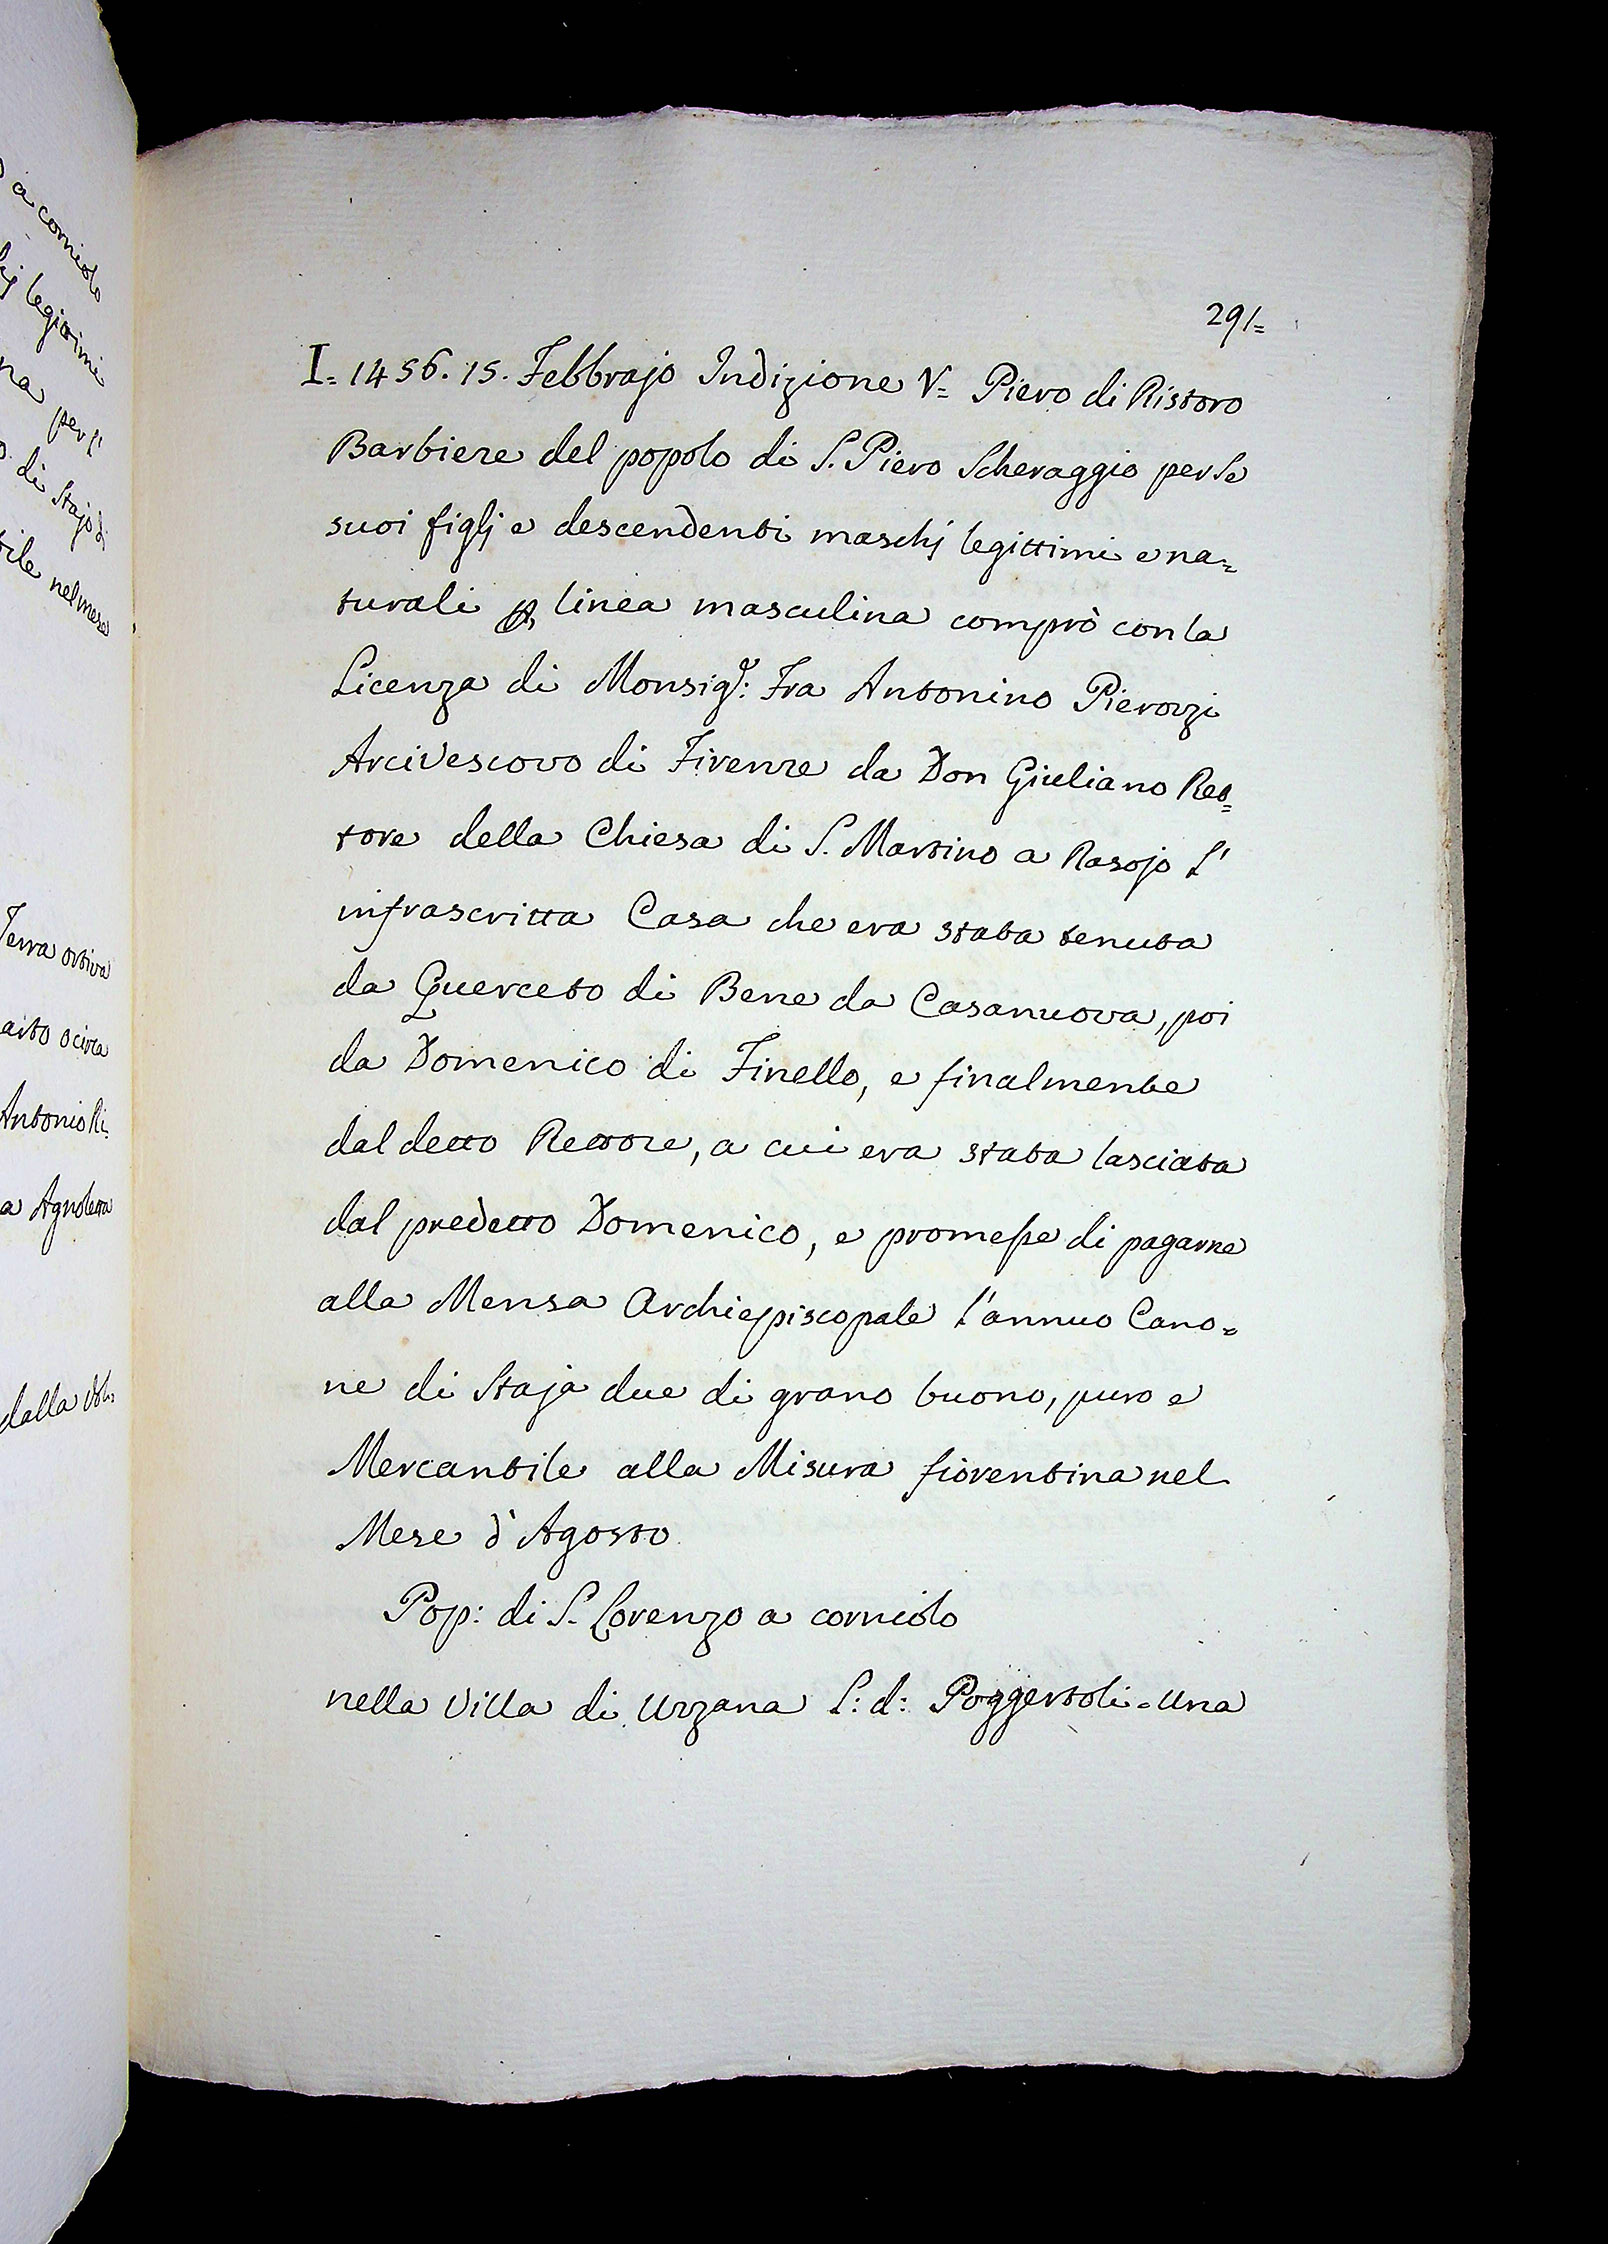 a corniolo
legittimi
na per l'
di Stajo
tile nel mese
Terra ortiva
Antonio Ri=
a Agnoletta
dalla
291=
I= 1456. 15. Febbrajo Indizione V= Piero di Ristoro
Barbiere del popolo di S. Piero Scheraggio per Se
suoi figlj e descendenti maschj legittimi e na=
turali ꝑ linea masculina comprò con la
Licenza di Monsig.r: Fra Antonino Pierozzi
Arcivescovo di Firenze da Don Giuliano Ret=
tore della Chiesa di S. Martino a Rasojo l'
infrascritta Casa che era stata tenuta
da Querceto di Bene da Casanuova, poi
da Domenico di Finello, e finalmente
dal detto Rettore, a cui era stata lasciata
dal predetto Domenico, e promesse di pagarne
alla Mensa Archiepiscopale l'annuo Cano=
ne di Staja due di grano buono, puro e
Mercantile alla Misura fiorentina nel
Mese d'Agosto
Pop: di S. Lorenzo a corniolo
nella Villa di Uzzana L: d: Poggertoli = Una